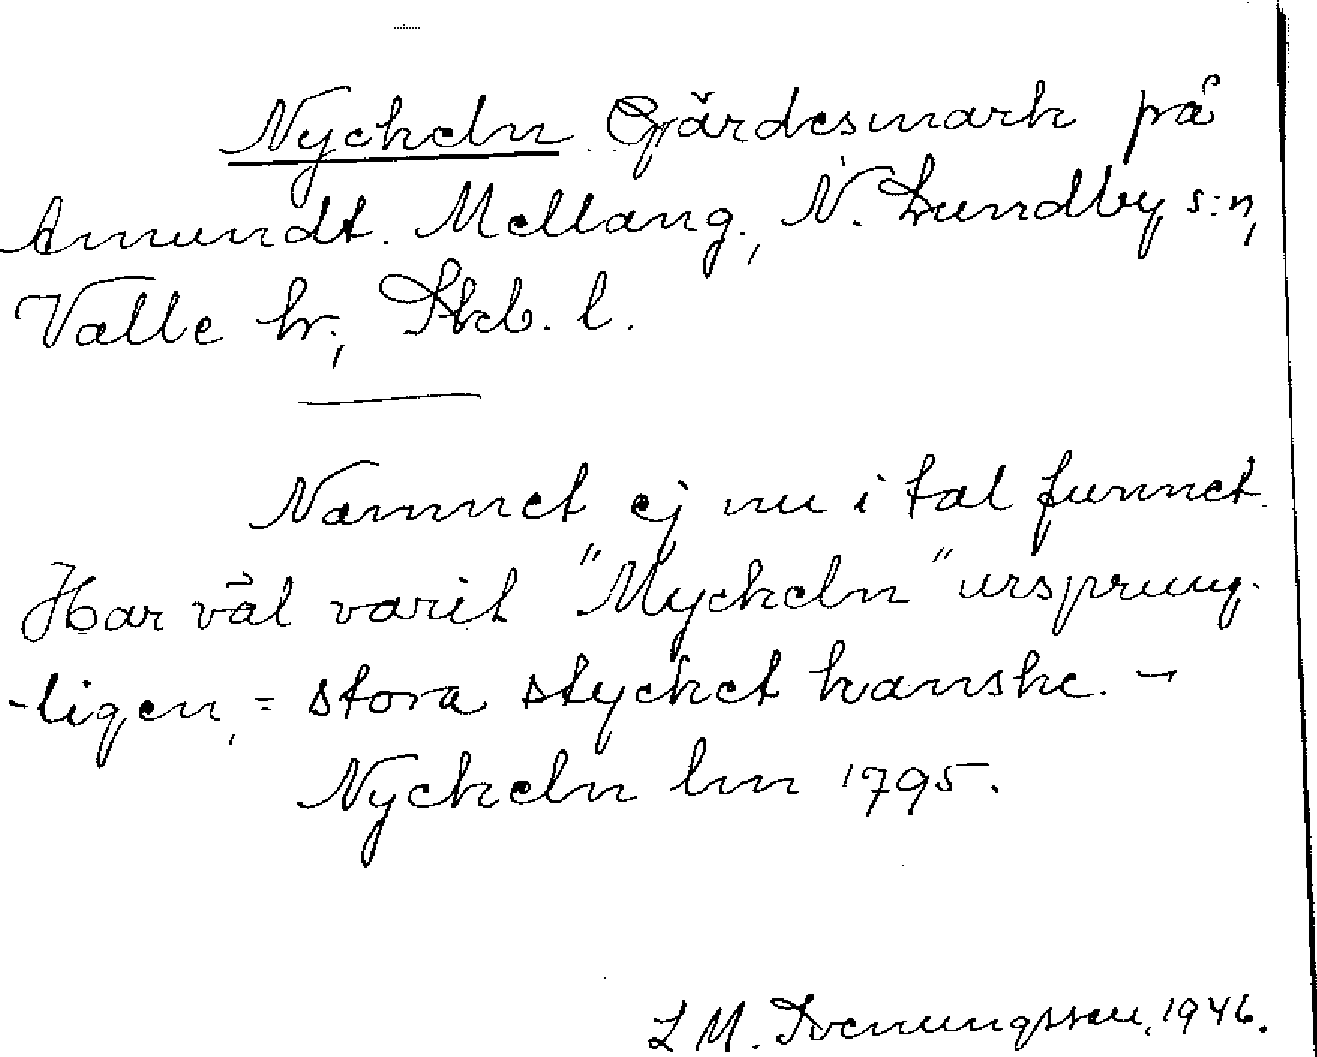 Nyckeln Gärdesmark på
Amundt. Mellang., N. Lundby s:n,
Valle hr; Skb. l.
Namnet ej nu i tal funnet.
Har väl varit "Myckeln" ursprung-
-ligen, = stora stycket kanske. -
Nyckeln lm 1795.
L M. Svenungsson, 1946.